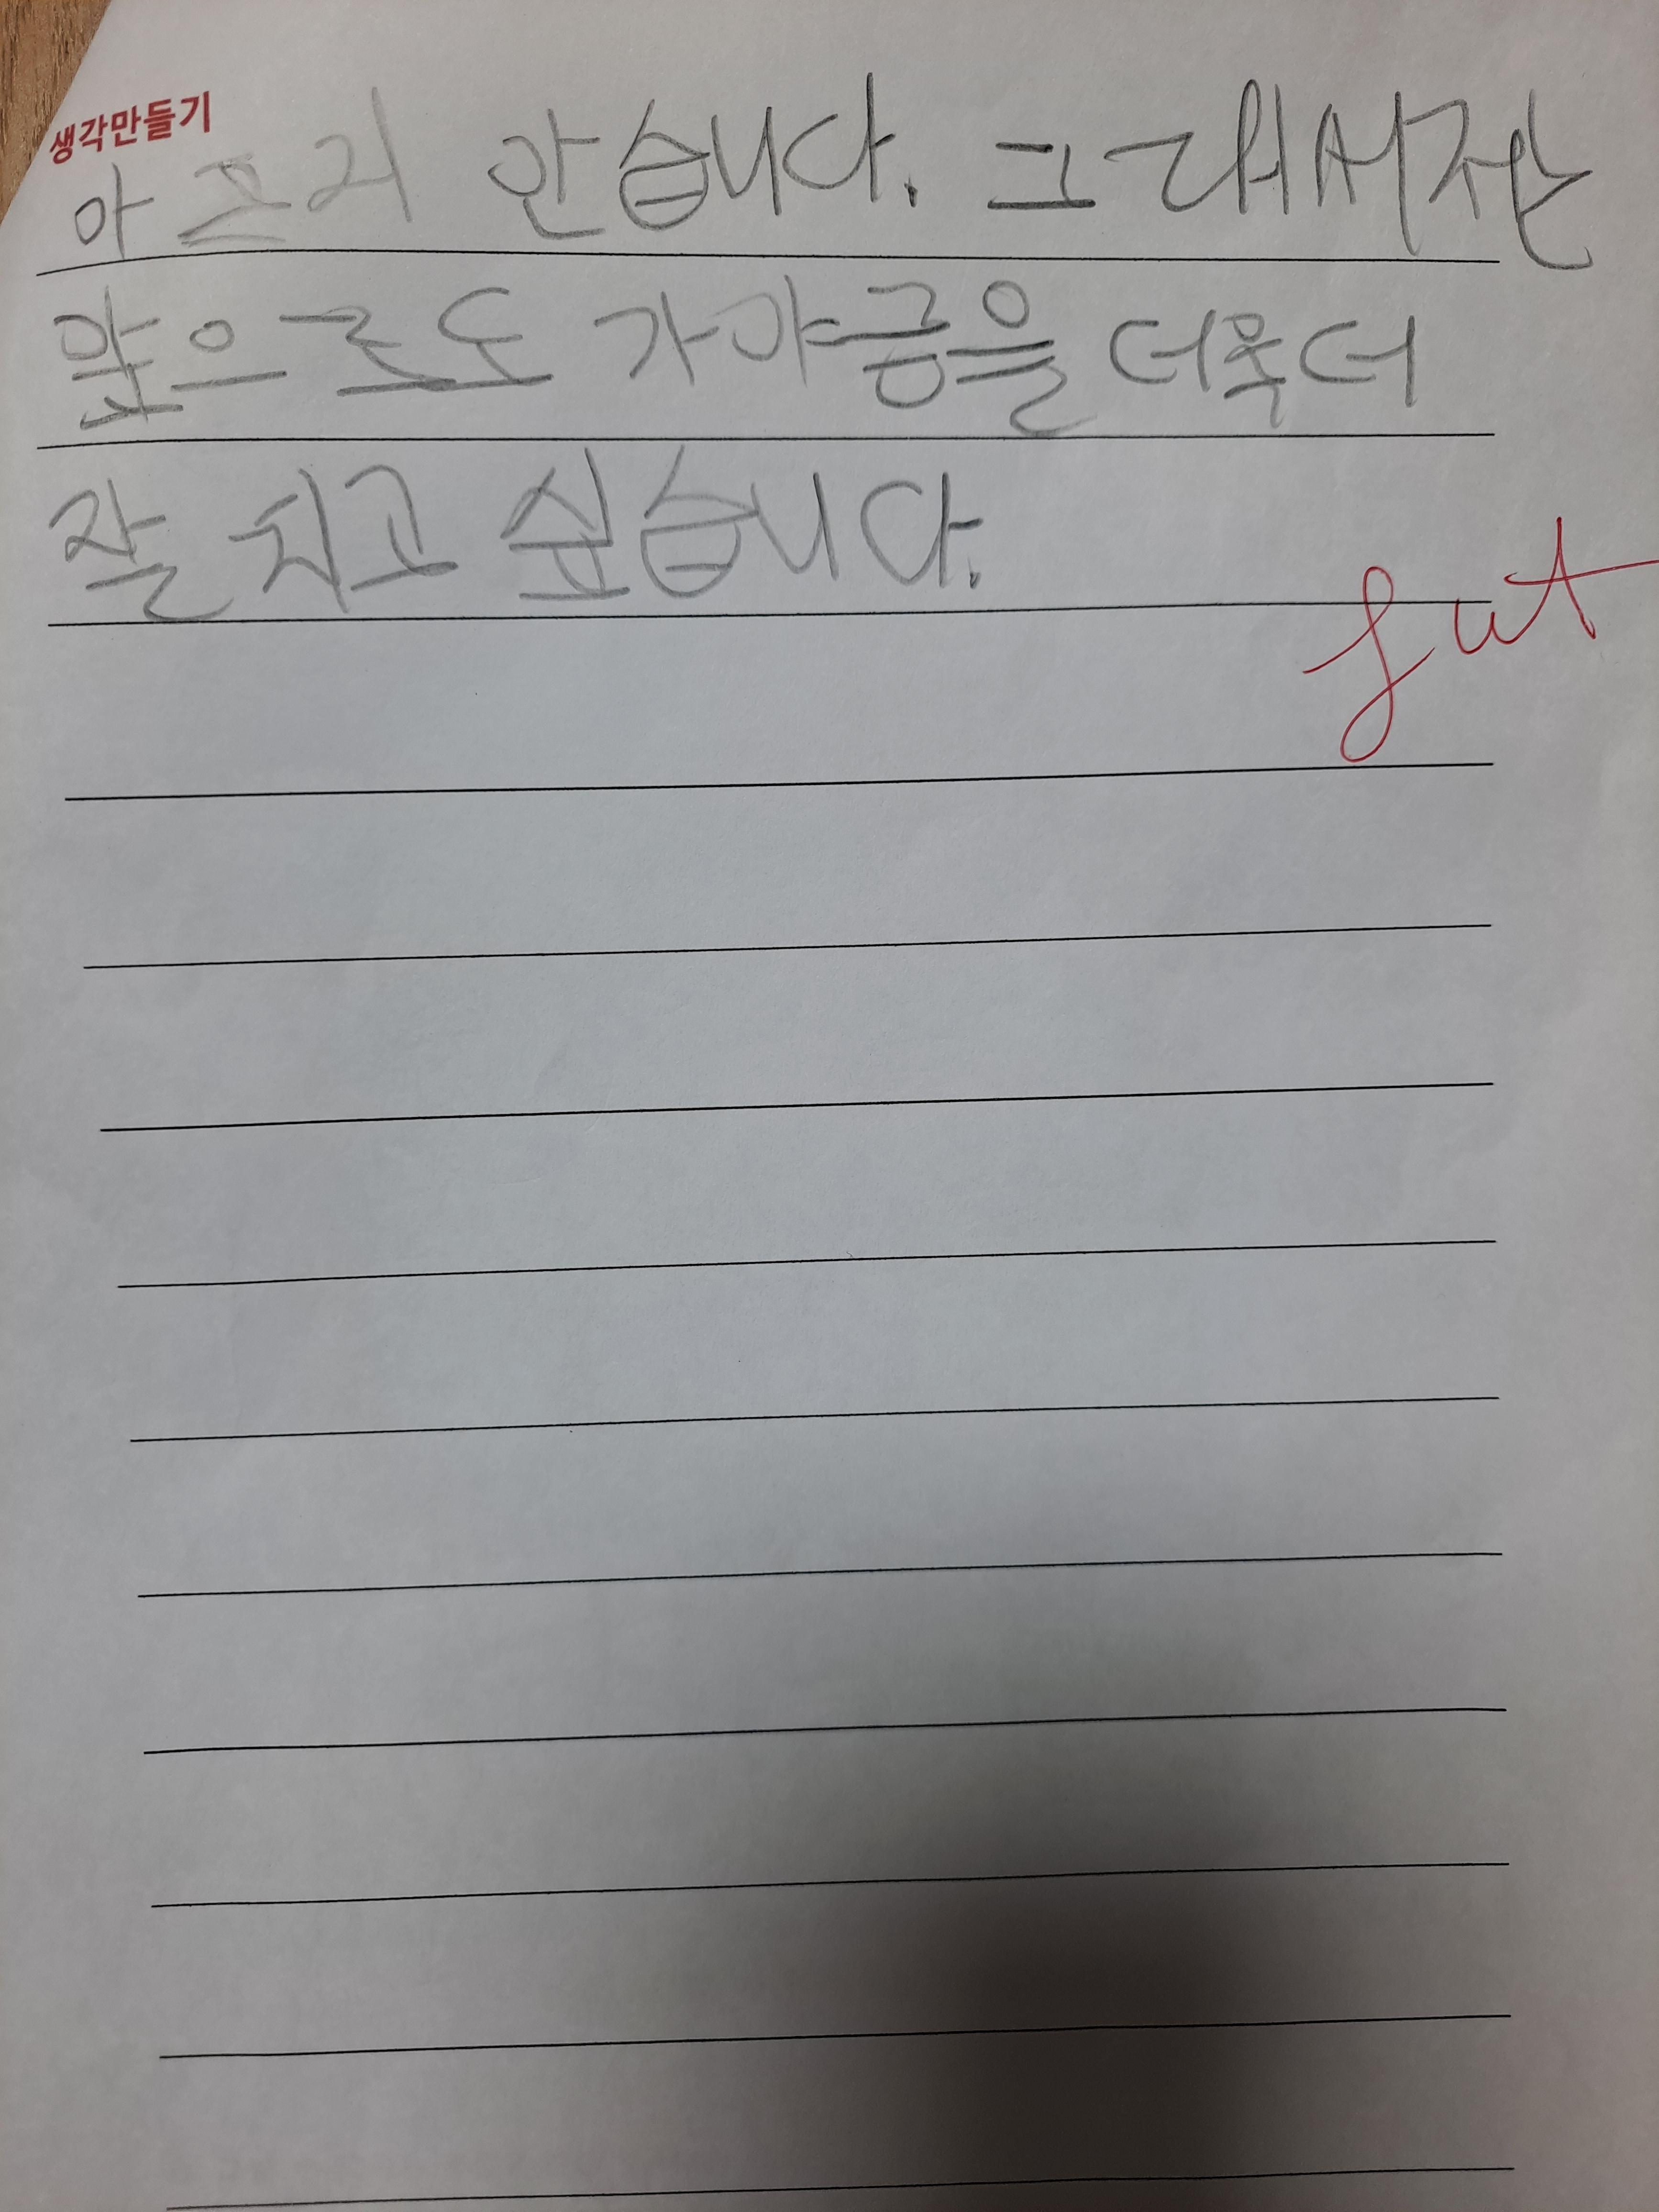 생각만들기
안습니다. 그래서전
앞으로도 가야금을 더욱더
잘 치고 싶습니다.